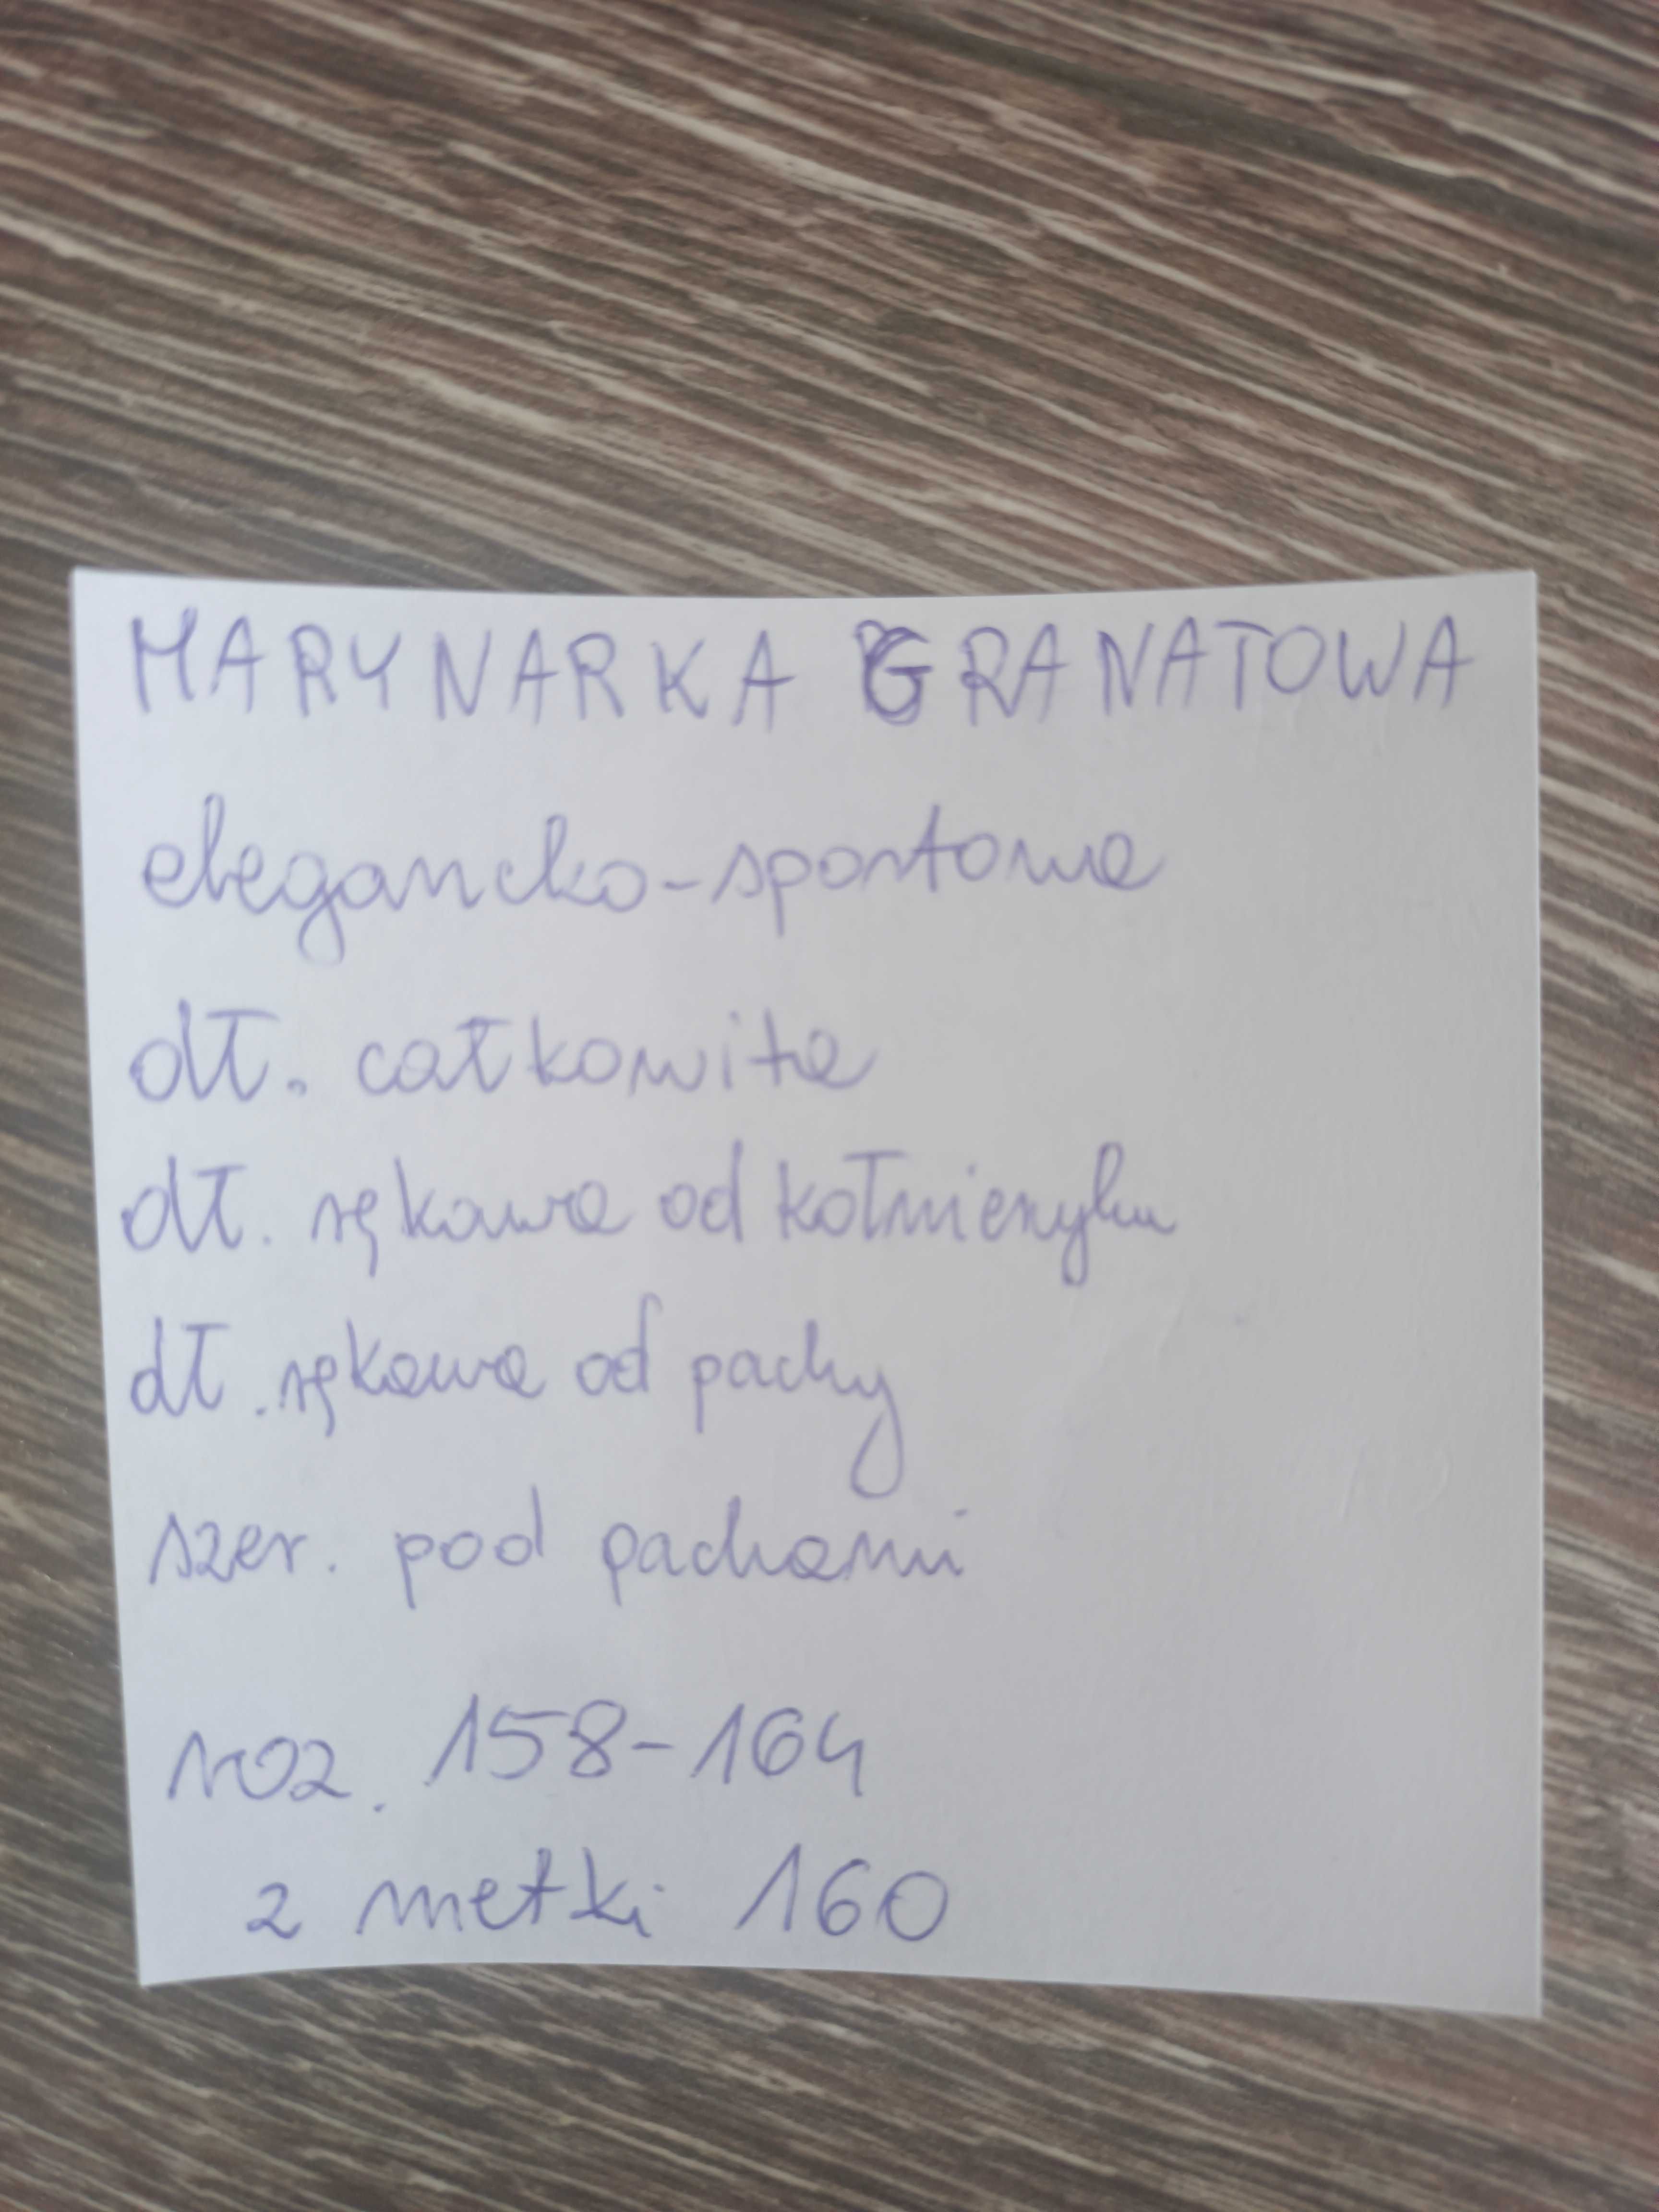 MARYNARKA GRANATOWA
elegancko-sportowa
dł. całkowita
dł. rękawa od kołnierzyku
dł. rękawa od pachy
szer. pod pachami
roz. 158-164
z metki 160